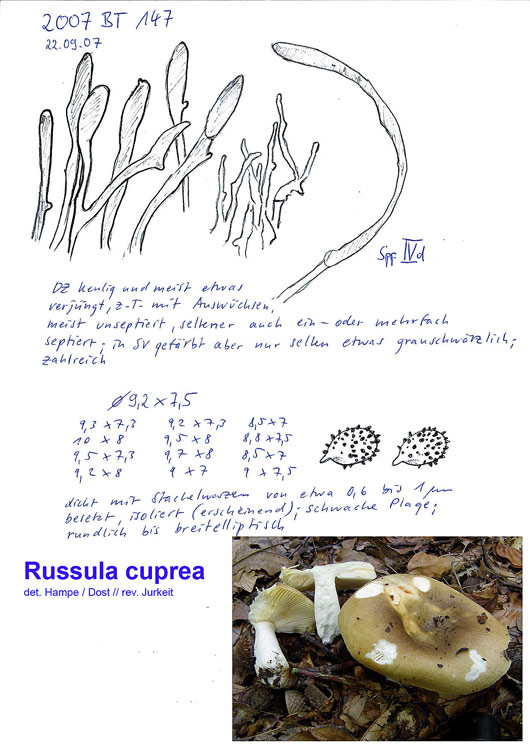 2007 BT 147
22.09.07
Spp IVd
DZ keulig und meist etwas
verjüngt, z.T. mit Auswüchsen,
meist unseptiert, seltener auch ein- oder mehrfach
septiert; in SV gefärbt aber nur selten etwas grauschwärzlich;
zahlreich
⌀ 9,2 x 7,5
9,3 x 7,3 9,2 x 7,3 8,5 x 7
10 x 8 9,5 x 8 8,8 x 7,5
9,5 x 7,3 9,7 x 8 8,5 x 7
9,2 x 8 9 x 7 9 x 7,5
dicht mit Stachelwarzen von etwa 0,6 bis 1 µm
besetzt, isoliert (erscheinend); schwache Plage;
rundlich bis breitelliptisch
Russula cuprea
det. Hampe / Dost // rev. Jurkeit